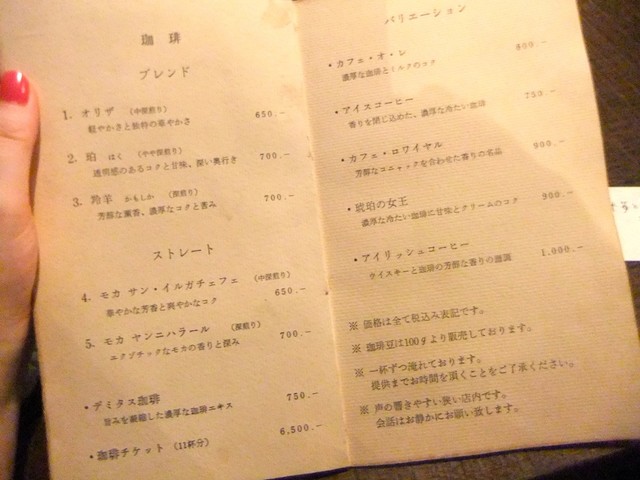 珈琲
ブレンド
1. オリザ (中深煎り) 650.-
軽やかさと独特の華やかさ
2. 珀 はく (やや深煎り) 700.-
透明感のあるコクと甘味、深い奥行き
3. 羚羊 かもしか (深煎り) 700.-
芳醇な薫香、濃厚なコクと苦み
ストレート
4. モカ サン・イルガチェフェ (中深煎り) 650.-
華やかな芳香と爽やかなコク
5. モカ ヤンニハラール (深煎り) 700.-
エクゾチックなモカの香りと深み
・デミタス珈琲 750.-
旨みを凝縮した濃厚な珈琲エキス
・珈琲チケット (11杯分) 6,500.-
バリエーション
・カフェ・オ・レ 800.-
濃厚な珈琲とミルクのコク
・アイスコーヒー 750.-
香りを閉じ込めた、濃厚な冷たい珈琲
・カフェ・ロワイヤル 900.-
芳醇なコニャックを合わせた香りの名品
・琥珀の女王 900.-
濃厚な冷たい珈琲に甘味とクリームのコク
・アイリッシュコーヒー 1,000.-
ウイスキーと珈琲の芳醇な香りの諧調
※ 価格は全て税込み表記です。
※ 珈琲豆は100gより販売しております。
※ 一杯ずつ淹れております。
提供までお時間を頂くことをご了承ください。
※ 声の響きやすい狭い店内です。
会話はお静かにお願い致します。